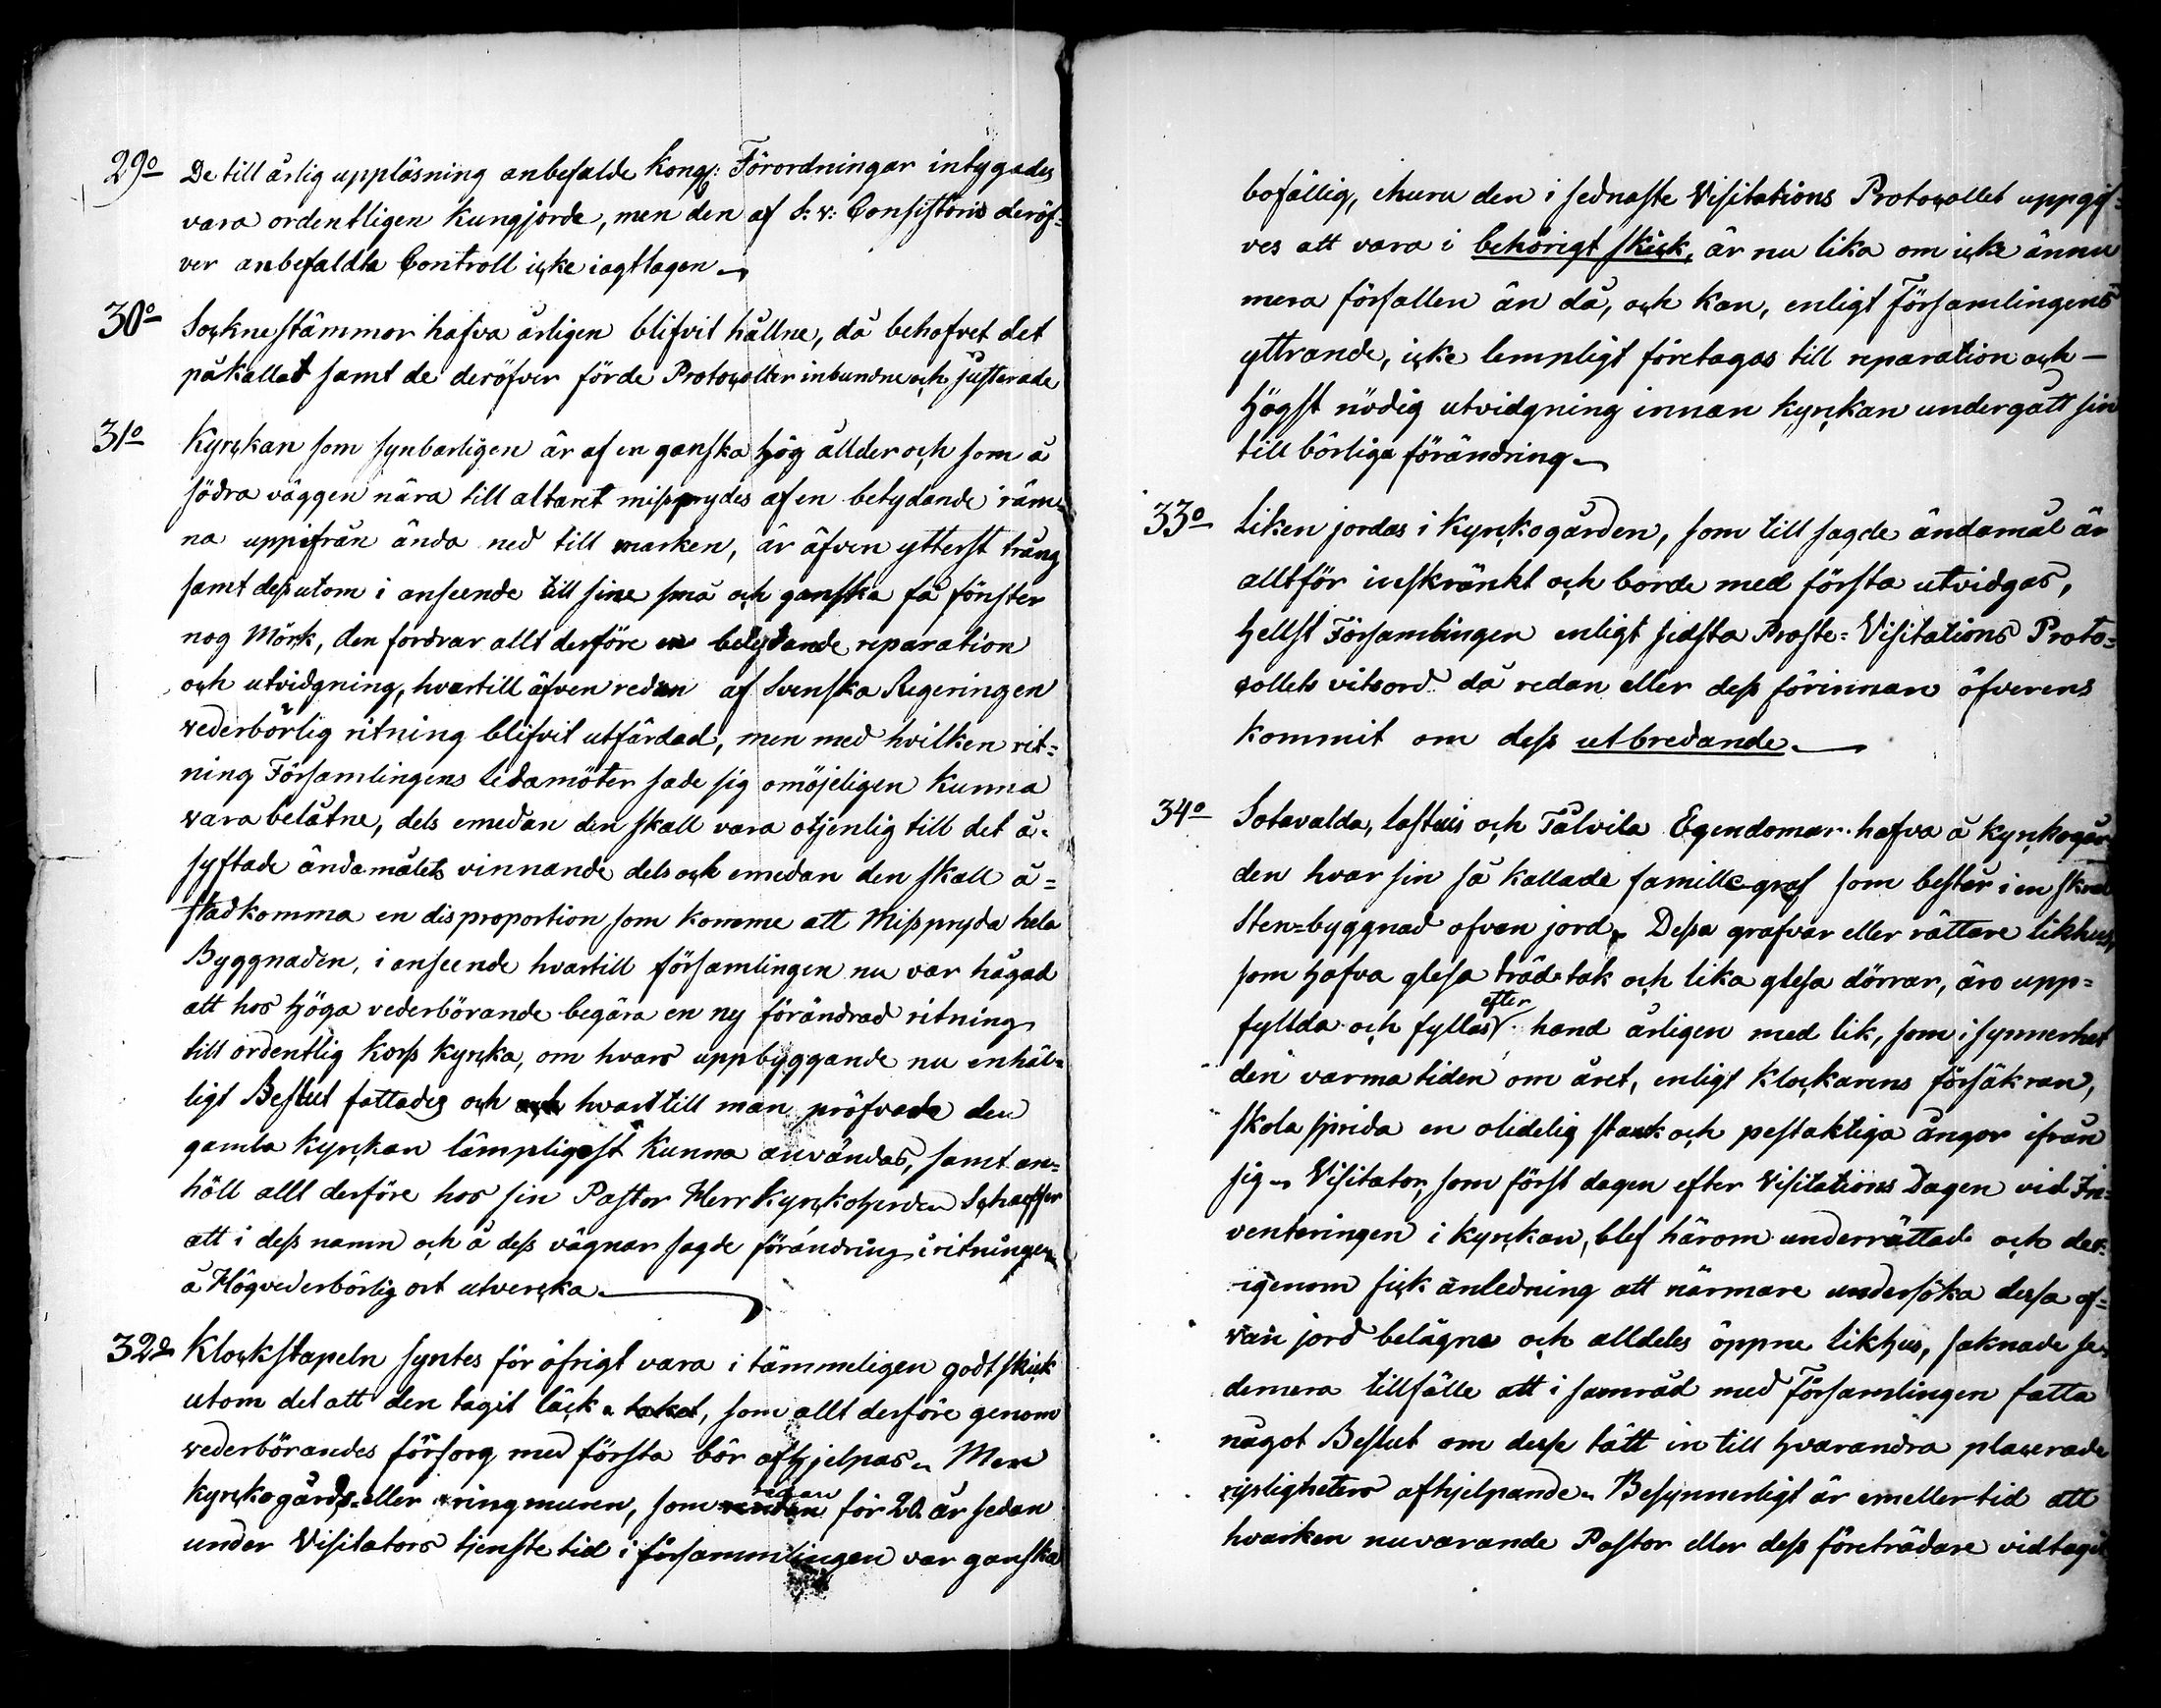 29o De till årlig uppläsning anbefalde Kongl: Förordningar intygades
vara ordentligen Kungjorde, men den af S: v: Consistorio deröf=
ver anbefaldta Controll icke iagttagen
30o Socknestämmor hafva årligen blifvit hållne, då behofvet det
påkallat samt de deröfver förde Protocoller inbundne och justerade
31o Kyrckan som synbarligen är af en ganska hög ållder och som å
södra väggen nära till altaret misprydes af en betydande räm=
na uppifrån ända ned till marken, är äfven ytterst trång
samt dessutom i anseende till sine små och ganska få fönster
nog Mörk, den fordrar allt derföre en betydande reparation
och utvidgning, hvartill äfven redan af Svenska Regeringen
vederbörlig ritning blifvit utfärdad, men med hvilken rit=
ning Församlingens Ledamöter sade sig omöjeligen Kunna
vara belåtne, dels emedan den skall vara otjenlig till det å=
syftade ändamålets vinnande dels och emedan den skall å=
stadkomma en disproportion som komme att Misspryda hela
Byggnaden, i anseende hvartill församlingen nu var hågad
att hos höga vederbörande begära en ny förändrad ritning
till ordentlig Korss Kyrcka, om hvars uppbyggande nu enhäl=
ligt Beslut fattades och hvart till man pröfvade den
gamla Kyrckan lämpligast Kunna användas, samt an=
höll allt derföre hos sin Pastor Herr Kyrckoherden
att i dess namn och å dess vägnar sagde förändring i ritningen
å Högvederbörlig ort utvercka.
32o Klockstapeln syntes för öfrigt vara i tämmeligen godt skick
utom det att den tagit läck a taket, som allt derföre genom
vederbörandes försorg med första bör afhjelpas. Men
kyrckogårds= eller ringmuren, som redan för 20 år sedan
under Visitators tjenste tid i församlingen var ganska
bofällig, ehuru den i sednaste Visitations Protocollet uppgif=
ves att vara i behörigt skick, är nu lika om icke ännu
mera förfallen än då, och kan, enligt Församlingens
yttrande, icke lempligt företagas till reparation och –
högst nödig utvidgning innan Kyrckan undergått sin
till börliga förändring
33o Liken jordas i Kyrckogården, som till sagde ändamål är
alltför inskränkt och borde med första utvidgas,
hellst Församlingen enligt sidsta Proste= Visitations Proto=
collets vitsord då redan eller dess förinnan öfverens
kommit om dess utbredande.
34o Sotavalda, Lastuis och Talvila Egendomar hafva å Kyrckogår
den hvar sin så kallade famille graf som består i en
Sten=byggnad ofvan jord. Dessa grafvar eller rättare likhus,
som hafva glesa träd tak och lika glesa dörrar, äro upp=
fyllda och fyllas efter hand årligen med lik, som i synnerhet
den varma tiden om året, enligt Klockarens försäkran,
skola sprida en olidelig stank och pestaktiga ångor ifrån
sig. Visitator, som först dagen efter Visitations Dagen vid In=
venteringen i Kyrckan, blef härom underrättad och der=
igenom fick anledning att närmare undersöka dessa of=
van jord belägna och alldeles öppne likhus, saknade se=
dermera tillfälle att i samråd med Församlingen fatta
något Beslut om desse tätt in till hvarandra placerade
rysligheters afhjelpande. Besynnerligt är emellertid att
hvarken nuvarande Pastor eller dess företrädare vidtagit